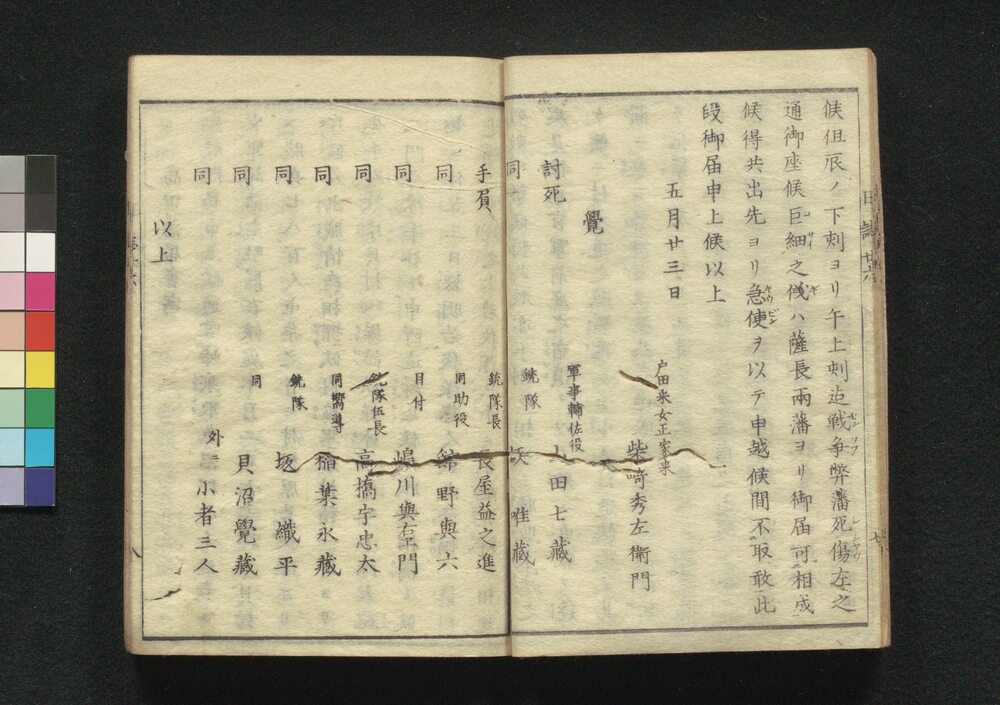 候但辰ノ下刻ヨリ午上刻迠戦争弊藩死傷左之
通御座候巨細之儀ハ薩長兩藩ヨリ御届可相成
候得共出先ヨリ急使ヲ以テ申越候間不取敢此
段御届申上候以上
五月廿三日
戸田釆女正家来
柴﨑秀左衛門
覺
討死 軍事輔佐役 上田七藏
同 銃隊 唯藏
手負 銃隊長 長屋益之進
同 同助役 舘野與六
同 目付 嶋川與右門
同 銃隊伍長 高橋宇忠太
同 同嚮導 稲葉永藏
同 銃隊 坂織平
同 同 貝沼覺藏
外ニ小者三人
以上